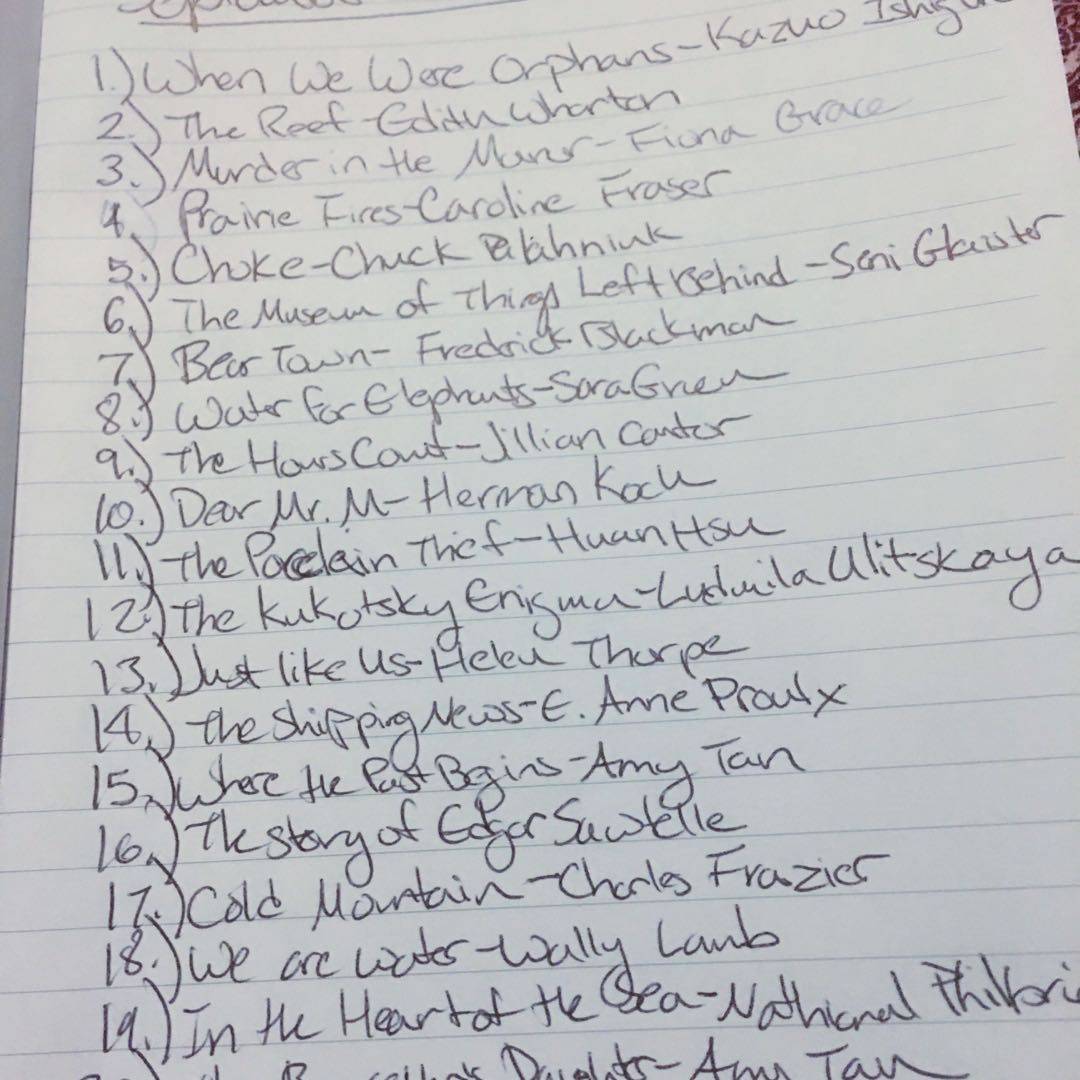 1.) When We Were Orphans-Kazuo
2.) The Reef-Edith Wharton
3.) Murder in the Manor-Fiona Grace
4. Prairie Fires-Caroline Fraser
5.) Choke-Chuck Palahniuk
6.) The Museum of Things Left Behind-Seni Glaister
7.) Bear Town-Fredrick Blackman
8.) Water for Elephants-Sara Gruen
9.) The Hours Count-Jillian Cantor
10.) Dear Mr. M-Herman Koch
11.) The Porcelain Thief-Huan Hsu
12.) The Kukotsky Enigma-Ludmila Ulitskaya
13.) Just like Us-Helen Thorpe
14.) The Shipping News-E. Anne Proulx
15.) Where the Past Begins-Amy Tan
16.) The story of Edgar Sawtelle
17.) Cold Mountain-Charles Frazier
18.) We are water-Wally Lamb
19.) In the Heart of the Sea-Nathianal
Daughters-Amy Tan